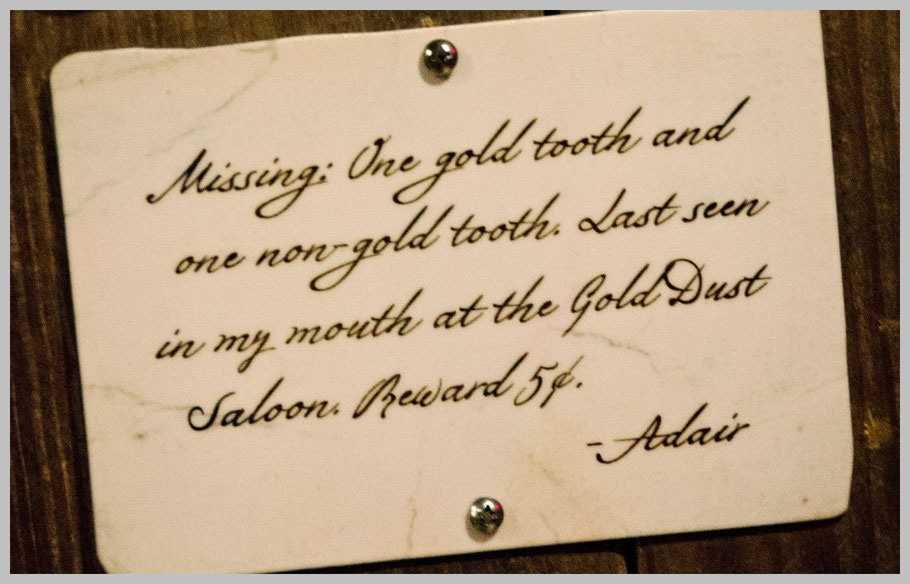 Missing: One gold tooth and
one non-gold tooth. Last seen
in my mouth at the Gold Dust
Saloon. Reward 5¢.
-Adair